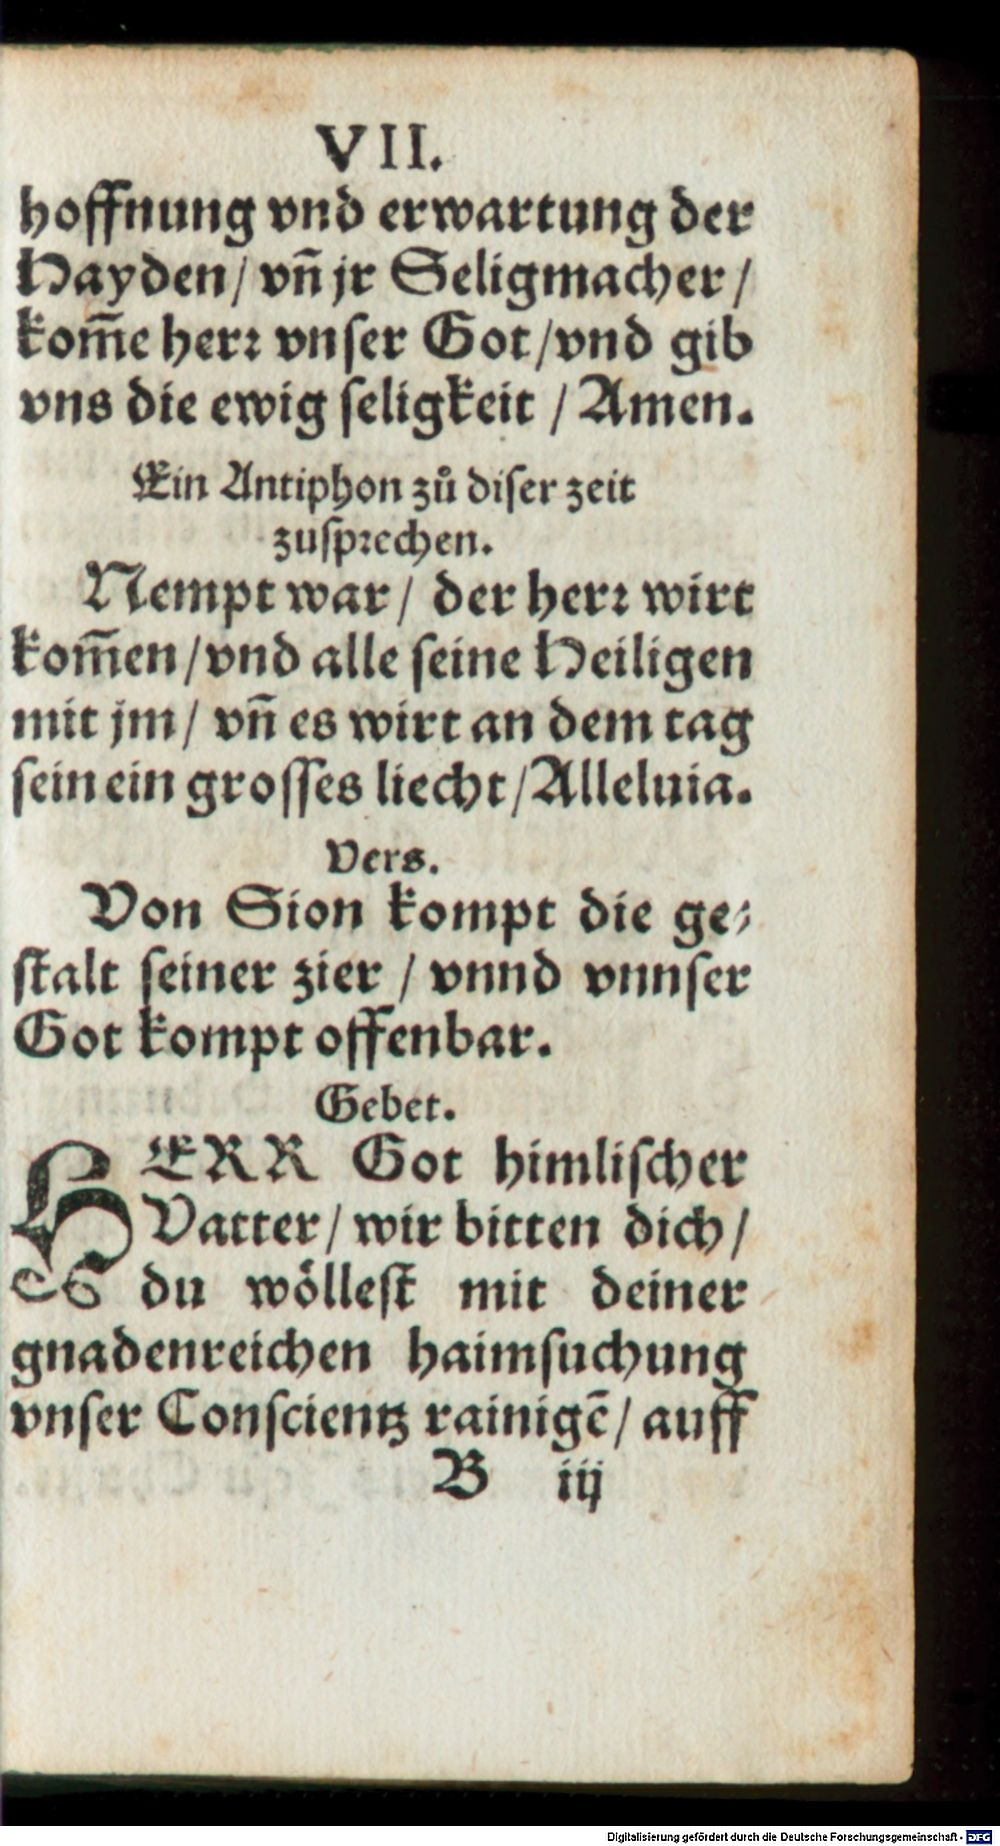 VII.
hoffnung vnd erwartung der
Hayden / vñ jr Seligmacher /
kom̃e herꝛ vnſer Got / vnd gib
vns die ewig ſeligkeit / Amen.
Ein Antiphon zů diſer zeit
zuſpꝛechen.
Nempt war / der herꝛ wirt
kom̃en / vnd alle ſeine Heiligen
mit jm / vñ es wirt an dem tag
ſein ein groſſes liecht / Alleluia.
Vers.
Von Sion kompt die ge⸗
ſtalt ſeiner zier / vnnd vnnſer
Got kompt offenbar.
Gebet.
HERR Got himliſcher
Vatter / wir bitten dich /
du wölleſt mit deiner
gnadenreichen haimſuchung
vnſer Conſcientz rainigē / auff
B iij
Digitalisierung gefördert durch die Deutsche Forschungsgemeinschaft - DFG